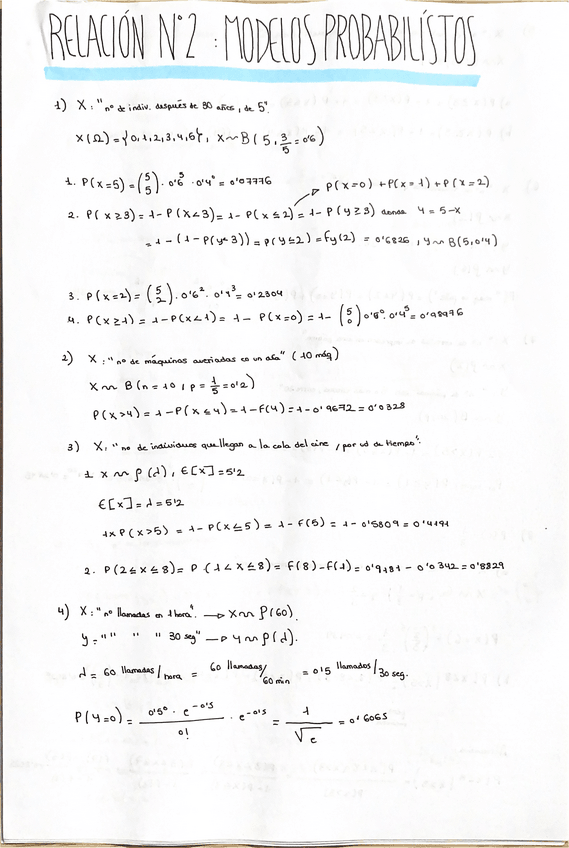 RELACIÓN Nº2 : MODELOS PROBABILÍSTOS
1) X: "nº de indiv. después de 30 años, de 5".
X(Ω)={0,1,2,3,4,5}, X~B(5, 3/5=0'6)
1. P(x=5) = (5 5) · 0'6⁵ · 0'4⁰ = 0'07776
P(x=0) + P(x=1) + P(x=2)
2. P(x≥3) = 1-P(x<3) = 1-P(x≤2) = 1-P(y≥3) donde y=5-x
= 1-(1-P(y<3)) = P(y≤2) = Fy(2) = 0'6826, y~B(5,0'4)
3. P(x=2) = (5 2) · 0'6² · 0'4³ = 0'2304
4. P(x≥1) = 1-P(x<1) = 1-P(x=0) = 1-(5 0) 0'6⁰ · 0'4⁵ = 0'98976
2) X: "nº de máquinas averiadas en un día" (10 máq)
X~B(n=10, p=1/5=0'2)
P(x>4) = 1-P(x≤4) = 1-F(4) = 1-0'9672 = 0'0328
3) X: "nº de individuos que llegan a la cola del cine, por ud de tiempo".
1. x~P(λ), E[x]=5'2
E[x]=λ=5'2
P(x>5) = 1-P(x≤5) = 1-F(5) = 1-0'5809 = 0'4191
2. P(2≤x≤8) = P(1<x≤8) = F(8)-F(1) = 0'9181-0'0342 = 0'8829
4) X: "nº llamadas en 1 hora". → X~P(60).
y: "" "" "" 30 seg" → y~P(λ).
λ = 60 llamadas/hora = 60 llamadas/60 min = 0'5 llamados/30 seg.
P(y=0) = 0'5⁰ · e^-0'5 / 0! · e^-0'5 = 1/√e = 0'6065